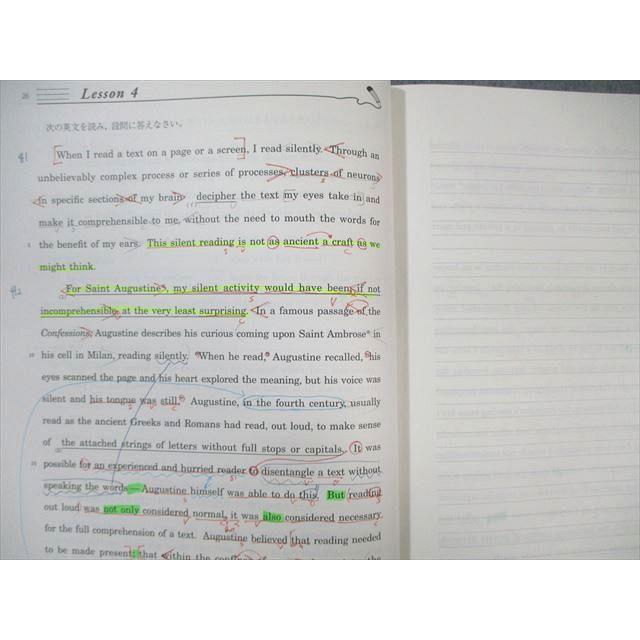 26
Lesson 4
次の英文を読み，設問に答えなさい。
When I read a text on a page or a screen, I read silently. Through an
unbelievably complex process or series of processes, clusters of neurons
in specific sections of my brain decipher the text my eyes take in and
make it comprehensible to me, without the need to mouth the words for
5 the benefit of my ears. This silent reading is not as ancient a craft as we
might think.
For Saint Augustine*, my silent activity would have been, if not
(1)
incomprehensible, at the very least surprising. In a famous passage of the
Confessions, Augustine describes his curious coming upon Saint Ambrose* in
10 his cell in Milan, reading silently. "When he read," Augustine recalled, "his
eyes scanned the page and his heart explored the meaning, but his voice was
silent and his tongue was still." Augustine, in the fourth century, usually
read as the ancient Greeks and Romans had read, out loud, to make sense
of the attached strings of letters without full stops or capitals. It was
(2)
15 possible for an experienced and hurried reader to disentangle a text without
speaking the words — Augustine himself was able to do this. But reading
out loud was not only considered normal, it was also considered necessary
for the full comprehension of a text. Augustine believed that reading needed
to be made present; that within the